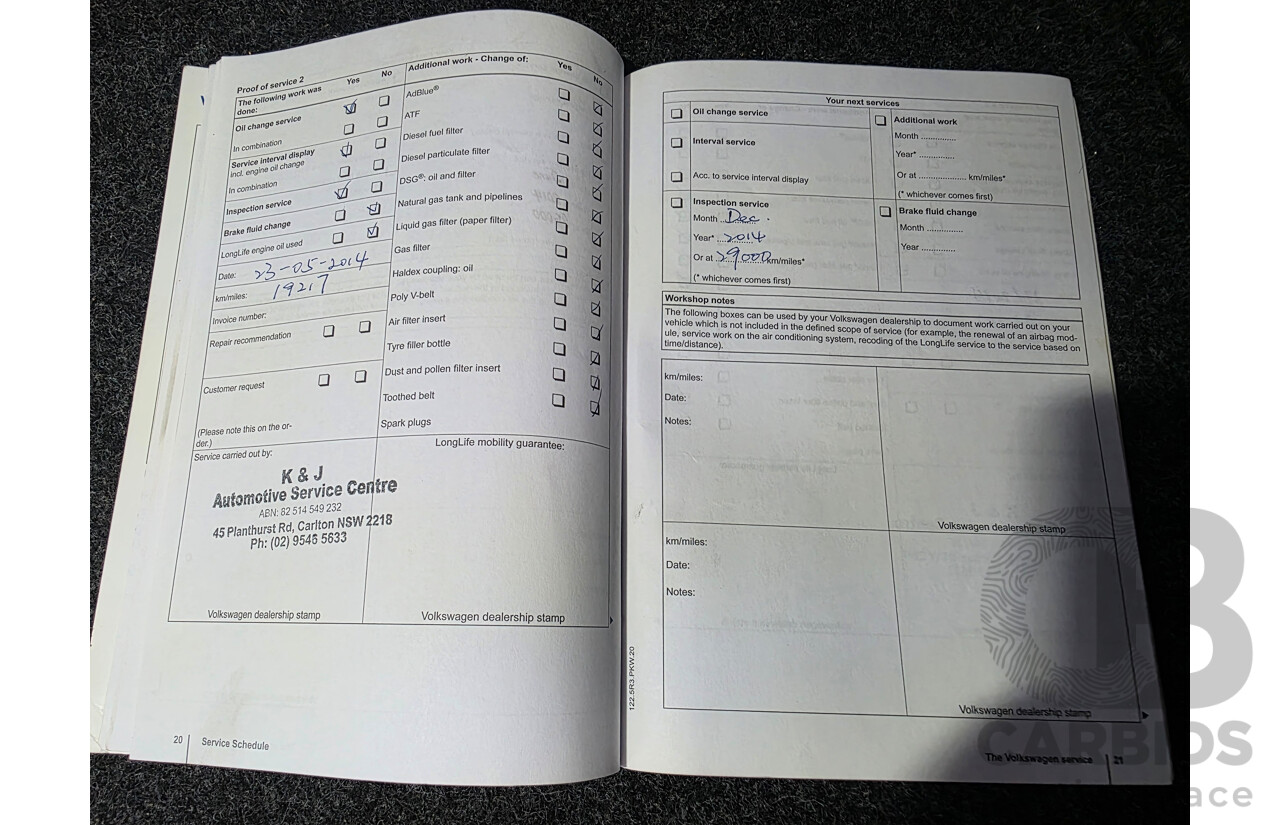 Proof of service 2
The following work was done: Yes No
Oil change service
In combination
Service interval display
incl. engine oil change
In combination
Inspection service
Brake fluid change
LongLife engine oil used
Date: 23-05-2014
km/miles: 19217
Invoice number:
Repair recommendation
Customer request
(Please note this on the or-
der.)
Additional work - Change of: Yes No
AdBlue®
ATF
Diesel fuel filter
Diesel particulate filter
DSG®; oil and filter
Natural gas tank and pipelines
Liquid gas filter (paper filter)
Gas filter
Haldex coupling: oil
Poly V-belt
Air filter insert
Tyre filler bottle
Dust and pollen filter insert
Toothed belt
Spark plugs
Service carried out by:
K & J
Automotive Service Centre
ABN: 82 514 549 232
45 Planthurst Rd, Carlton NSW 2218
Ph: (02) 9546 5633
Volkswagen dealership stamp
LongLife mobility guarantee:
Volkswagen dealership stamp
20 Service Schedule
Your next services
Oil change service
Interval service
Acc. to service interval display
Inspection service
Month Dec.
Year* 2014
Or at 29000 km/miles*
(* whichever comes first)
Additional work
Month ..............
Year* ..............
Or at ................... km/miles*
(* whichever comes first)
Brake fluid change
Month ..............
Year ..............
Workshop notes
The following boxes can be used by your Volkswagen dealership to document work carried out on your
vehicle which is not included in the defined scope of service (for example, the renewal of an airbag mod-
ule, service work on the air conditioning system, recoding of the LongLife service to the service based on
time/distance).
km/miles:
Date:
Notes:
Volkswagen dealership stamp
km/miles:
Date:
Notes:
Volkswagen dealership stamp
122.5R3.PKW.20
The Volkswagen service 21
CARBIDS
ace